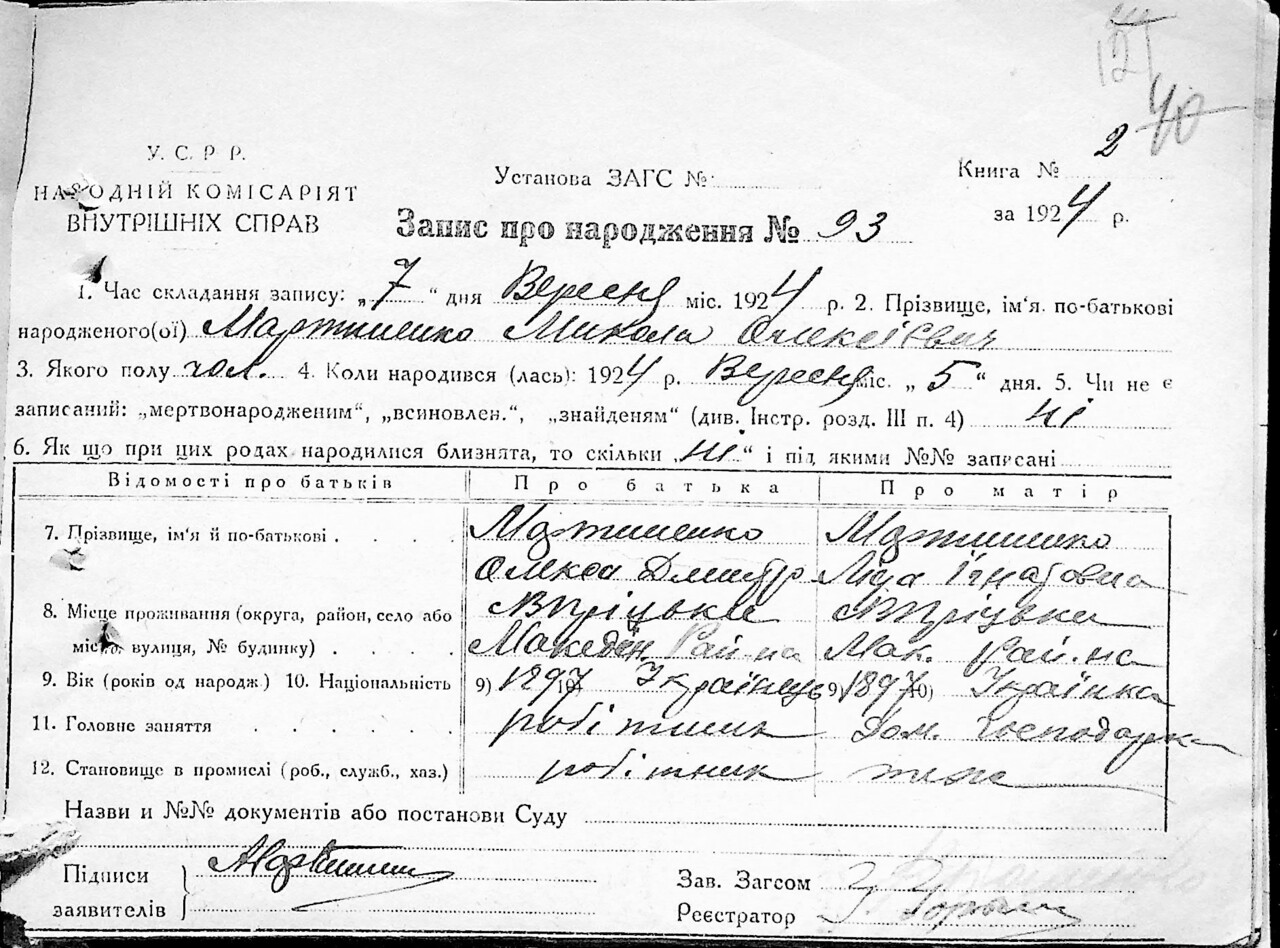 121
40
У. С. Р. Р.
НАРОДНІЙ КОМІСАРІЯТ
ВНУТРІШНІХ СПРАВ
Установа ЗАГС №
Книга № 2
за 1924 р.
Запис про народження № 93
1. Час складання запису: „7“ дня Вересня міс. 1924 р. 2. Прізвище, ім'я. по-батькові
народженого(ої) Мартиненко Микола Олексієвич
3. Якого полу чол. 4. Коли народився (лась): 1924 р. Вересня міс. „5“ дня. 5. Чи не є
записаний: „мертвонародженим“, „всиновлен.“, „знайденям“ (див. Інстр. розд. III п. 4) ні
6. Як що при цих родах народилися близнята, то скільки „ні“ і під якими №№ записані
Відомості про батьків Про батька Про матір
7. Прізвище, ім'я й по-батькові Мартиненко Мартиненко
Олекса Дмитр Ліда Ігнатовна
8. Місце проживання (округа, район, село або
місто, вулиця, № будинку) Македон. Рай-на Мак. Рай-на
9. Вік (років од народж.) 10. Національність 9) 1897 10) Українець 9) 1897 10) Українка
11. Головне заняття робітник Дом. Господарка
12. Становище в промислі (роб., служб., хаз.) робітник теж
Назви и №№ документів або постанови Суду
Підписи
заявителів
Зав. Загсом
Реєстратор